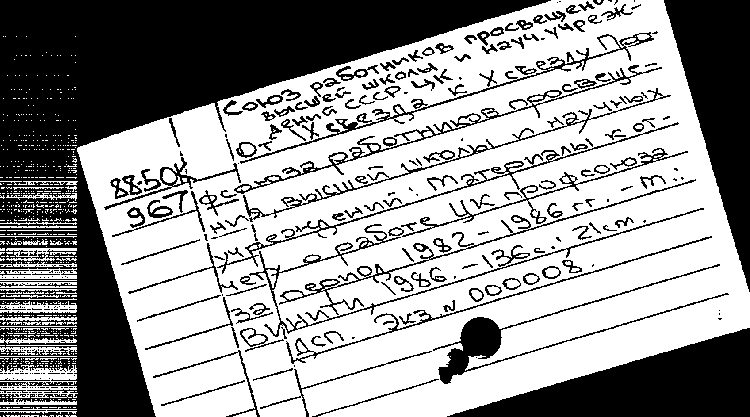 Союз работников просвещения,
высшей школы и науч. учреж-
дений СССР. ЦК.
От IX съезда к X съезду Про-
88-50К
967
фсоюза работников просвеще-
ния, высшей школы и научных
учреждений: Материалы к от-
чету о работе ЦК профсоюза
за период 1982-1986 гг. - М.:
ВИНИТИ, 1986. - 136с.; 21см.
ДСП. Экз. N 000008.